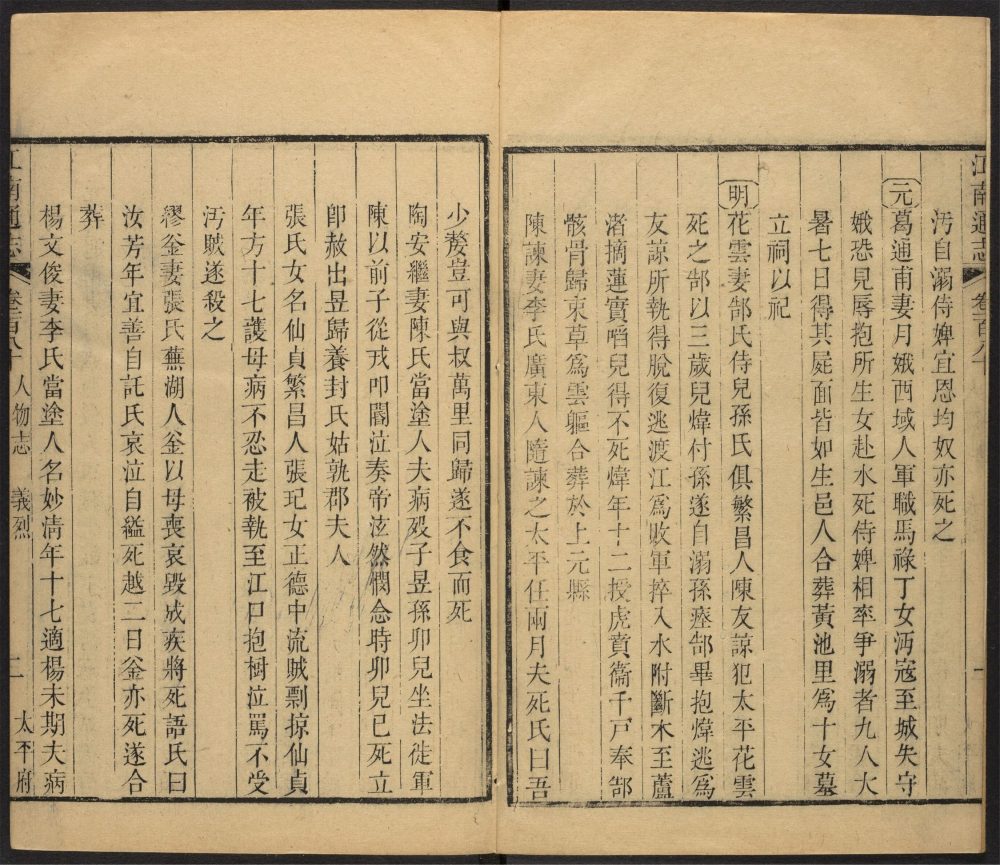 江南通志 卷一百八十 一
汚自溺侍婢宜恩均奴亦死之
元 葛通甫妻月娥西域人軍職馬祿丁女沔寇至城失守
娥恐見辱抱所生女赴水死侍婢相率爭溺者九人大
暑七日得其屍面皆如生邑人合葬黃池里爲十女墓
立祠以祀
明 花雲妻郜氏侍兒孫氏俱繁昌人陳友諒犯太平花雲
死之郜以三歲兒煒付孫遂自溺孫瘞郜畢抱煒逃爲
友諒所執得脫復逃渡江爲敗軍捽入水附斷木至蘆
渚摘蓮實啗兒得不死煒年十二授虎賁衞千戸奉郜
骸骨歸束草爲雲軀合葬於上元縣
陳諫妻李氏廣東人隨諫之太平任兩月夫死氏曰吾
少嫠豈可與叔萬里同歸遂不食而死
陶安繼妻陳氏當塗人夫病歿子昱孫卯兒坐法徙軍
陳以前子從戎叩閽泣奏帝泫然憫念時卯兒已死立
卽赦出昱歸養封氏姑孰郡夫人
張氏女名仙貞繁昌人張玘女正德中流賊剽掠仙貞
年方十七護母病不忍走被執至江口抱樹泣罵不受
汚賊遂殺之
繆釜妻張氏蕪湖人釜以母喪哀毀成疾將死語氏曰
汝芳年宜善自託氏哀泣自縊死越二日釜亦死遂合
葬
楊文俊妻李氏當塗人名妙淸年十七適楊未期夫病
江南通志 卷一百八十 人物志 義烈 二 太平府